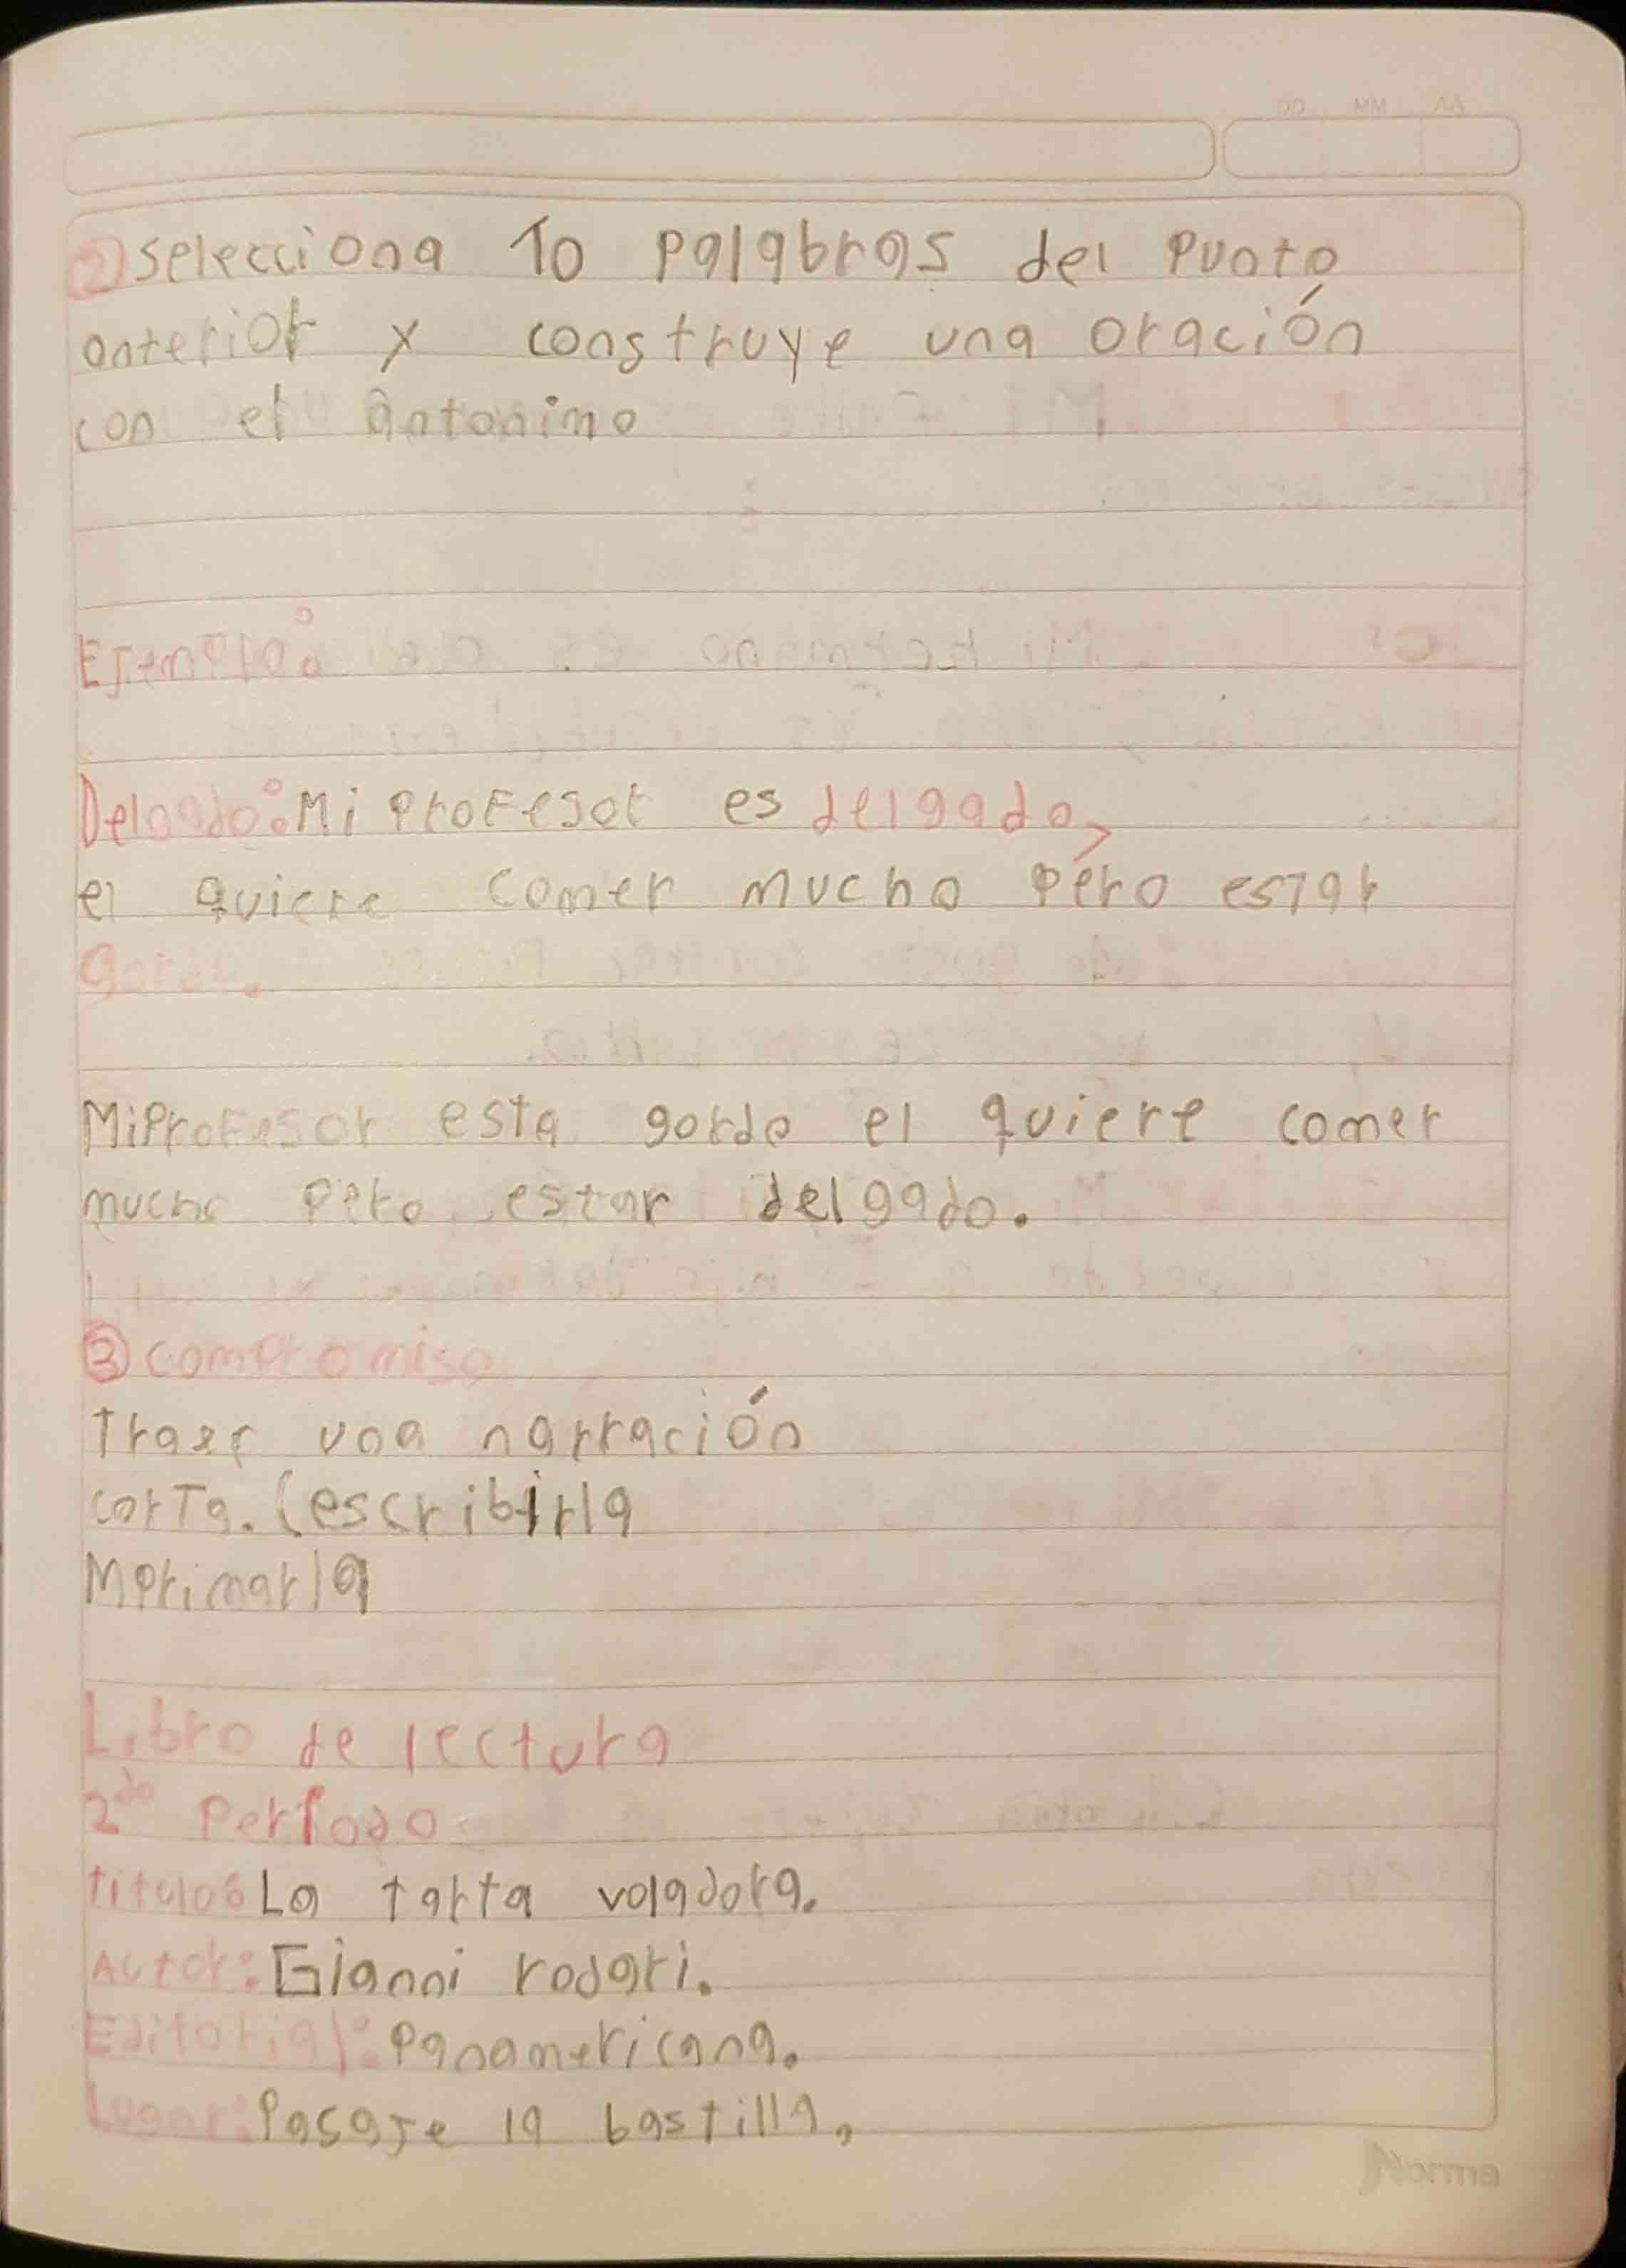 AA MM DD
② selecciona 10 palabras del punto
anterior y construye una oración
con el antonimo
Ejemplo:
Delgado: Mi profesor es delgado,
el quiere comer mucho pero estar
gordo.
Mi profesor esta gordo el quiere comer
mucho pero estar delgado.
③ compromiso
Traer una narración
corta. (escribirla
Libro de lectura
2do Período
titulo: La tarta voladora.
Autor: Gianni rodari.
Editorial: Panamericana.
Lugar: Pasaje la bastilla,
Norma